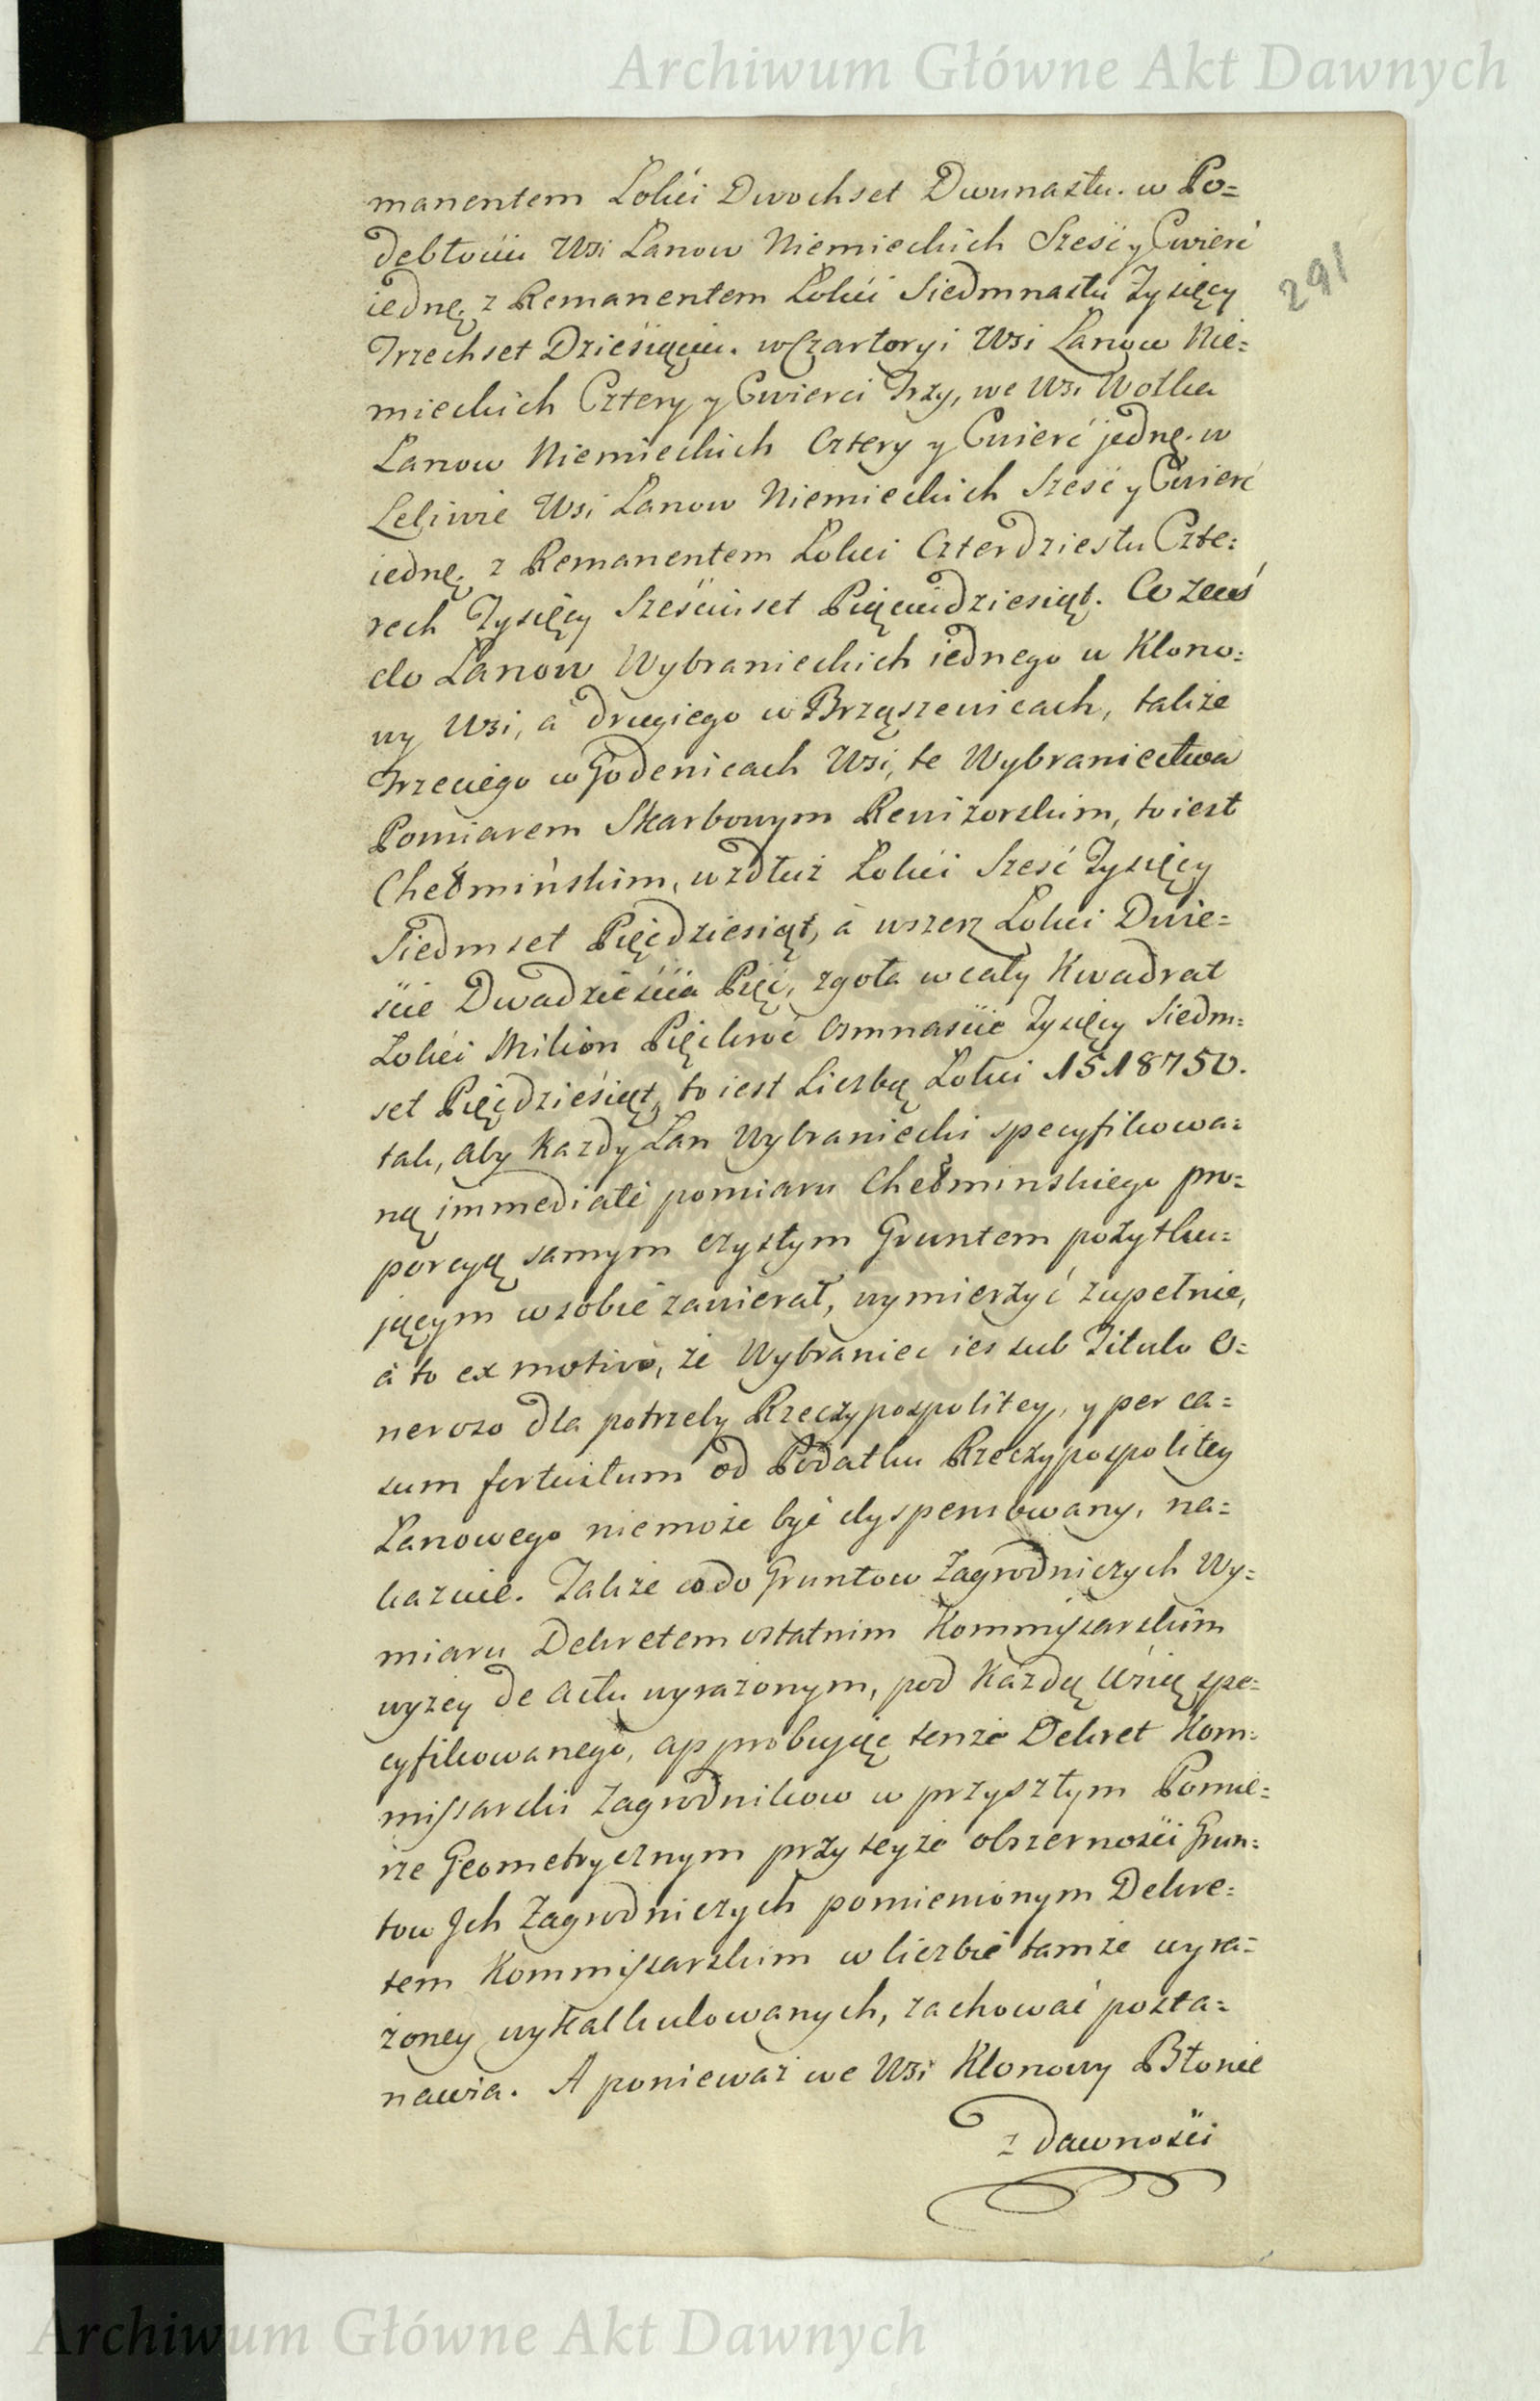 Archiwum Główne Akt Dawnych
291
manentem Łokci Dwochset Dwunastu. w Po=
debłociu Wsi Łanow Niemieckich Sześć y Cwierć
iednę, z Remanentem Łokci Siedmnastu Tysięcy
Trzechset Dziesięciu. w Czartoryi Wsi Łanow Nie=
mieckich Cztery y Cwierci Trzy, we Wsi Wolka
Łanow Niemieckich Cztery y Cwierć jednę. w
Leliwie Wsi Łanow Niemieckich Sześć y Cwierć
iednę, z Remanentem Łokci Czterdziestu Czte=
rech Tysięcy Sześciuset Pięciudziesiąt. Co zaś
do Łanow Wybranieckich iednego w Klono=
wy Wsi, á drugiego w Brząszewicach, także
trzeciego w Godenicach Wsi, te Wybraniectwa
Pomiarem Skarbowym Rewizorskim, to iest
Chełmińskim, wzdłuż Łokci Sześć Tysięcy
Siedmset Pięćdziesiąt, á wszerz Łokci Dwie=
ście Dwadzieścia Pięć, zgoła w cały Kwadrat
Łokci Milion Pięćkroć Osmnaście Tysięcy Siedm=
set Pięćdziesiąt, to iest Liczbą Łokci 1518750.
tak, aby każdy Łan Wybraniecki specyfikowa=
ną immediatè pomiaru Chełminskiego pro=
porcyą samym czystym Gruntem pożytku=
jącym w sobie zawierał, wymierzyć zupełnie,
á to ex motivo, że Wybraniec ies sub Titulo O=
neroso dla potrzeby Rzeczypospolitey, y per ca=
sum fortuitum od Podatku Rzeczypospolitey
Łanowego niemoże być dyspensowany, na=
kazuie. Także co do Gruntow Zagrodniczych Wy=
miaru Dekretem ostatnim Kommissarskim
wyżey de Actu wyrażonym, pod każdą Wsią spe=
cyfikowanego, approbując tenże Dekret Kom=
missarski Zagrodnikow w przyszłym Pomie=
rze Geometrycznym przy teyże obszerności Grun=
tow Jch Zagrodniczych pomienionym Dekre=
tem Kommissarskim w liczbie tamże wyra=
żoney wykalkulowanych, zachować posta=
nawia. A ponieważ we Wsi Klonowy Błonie
z dawności
Archiwum Główne Akt Dawnych